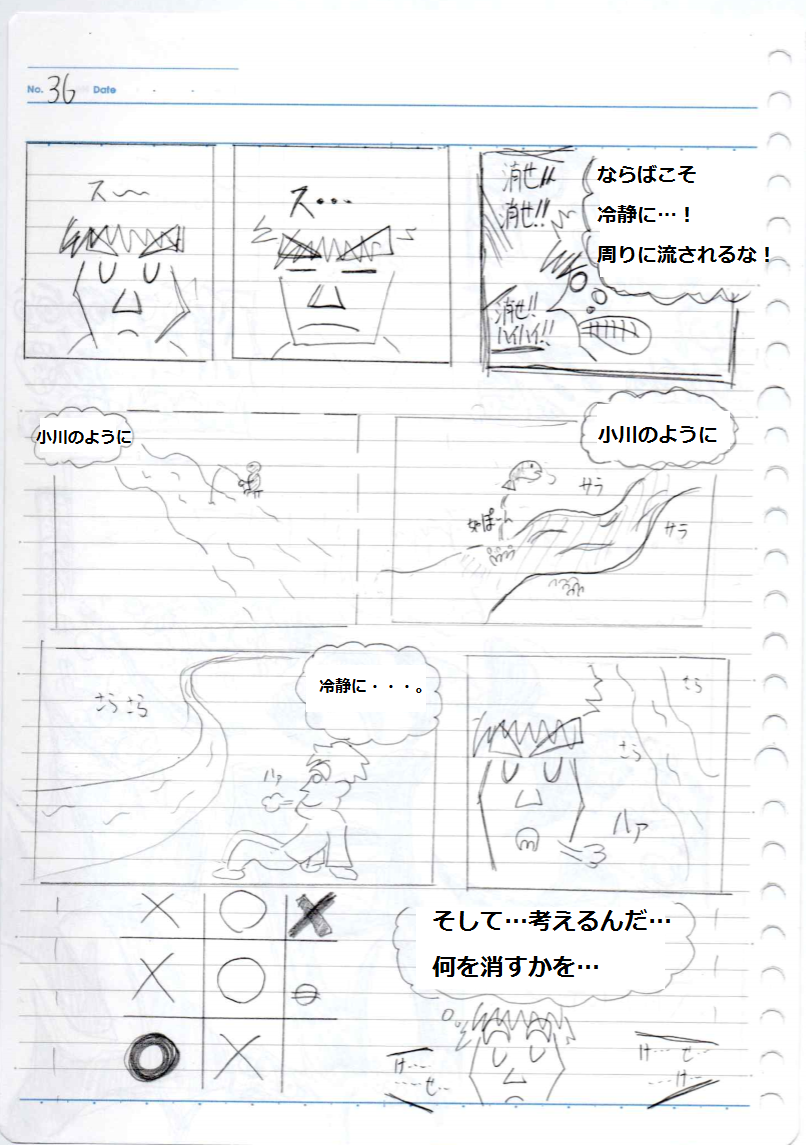 No. 36 Date
消せ!!
消せ!!
ならばこそ
冷静に…！
周りに流されるな！
消せ!!
ハイハイ!!
ス…
ス〜〜
小川のように
サラ
サラ
小川のように
さら
さら
ハァ
冷静に・・・。
さらさら
ハァ
そして…考えるんだ…
何を消すかを…
け…せ…
け…
け…
…せ